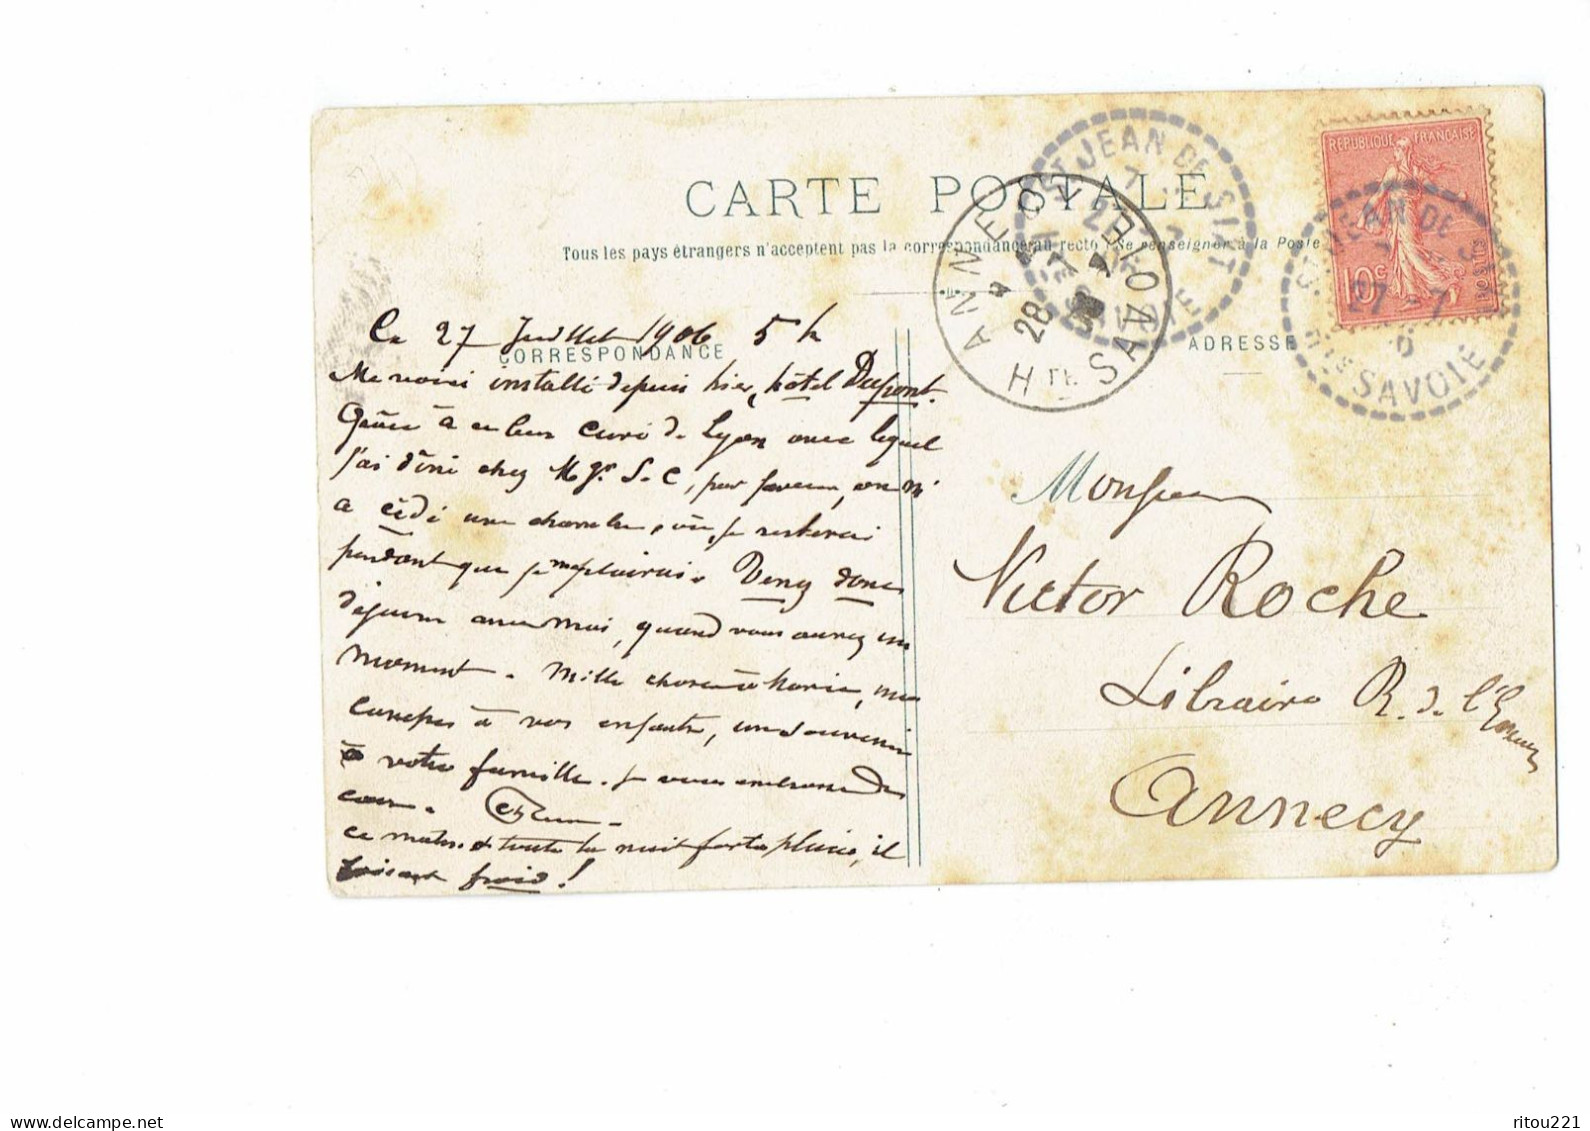 CARTE POSTALE
Tous les pays étrangers n'acceptent pas la correspondance au recto (Se renseigner à la Poste
CORRESPONDANCE
ADRESSE
REPUBLIQUE FRANÇAISE
10c
POSTES
ST JEAN DE SIXT
7
27 -7
HTE SAVOIE
ANNECY
28 -7
HTE SAVOIE
ST JEAN DE SIXT
27 -7
06
HTE SAVOIE
Ce 27 Juillet 1906 5 h
Me voici installé depuis hier, hôtel Dupont.
Grâce à curé de Lyon avec lequel
j'ai dîné chez Mgr. S.C, par faveur, on m'
a cédé une chambre, où je resterai
pendant que je me plairais. Venez donc
déjeuner avec moi, quand vous aurez un
moment. Mille choses à Marie, mes
à vos enfants, un souvenir
à votre famille. Je vous embrasse de
coeur.
ce matin et toute la nuit forte pluie, il
faisait froid!
Monsieur
Victor Roche
Libraire R. de l'
Annecy
ritou221